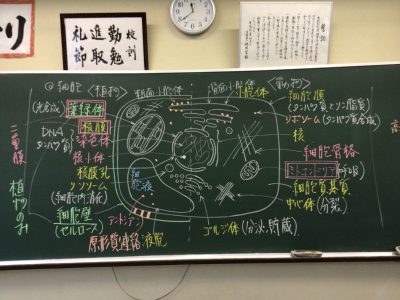 校訓
勤勉
進取
礼節
◎細胞 〈植物〉
粗面小胞体
滑面小胞体
〈動物〉
(光合成) 葉緑体
核膜
DNA
タンパク質
染色体
核小体
核膜孔
リソソーム
(細胞内消化)
細胞壁
(セルロース)
原形質連絡
液胞
アントシアン
細胞液
ゴルジ体 (分泌, 貯蔵)
細胞膜
(タンパク質とリン脂質)
リボソーム (タンパク質合成)
核
細胞骨格
ミトコンドリア (呼吸)
細胞質基質
中心体 (分裂)
二重膜
植物のみ